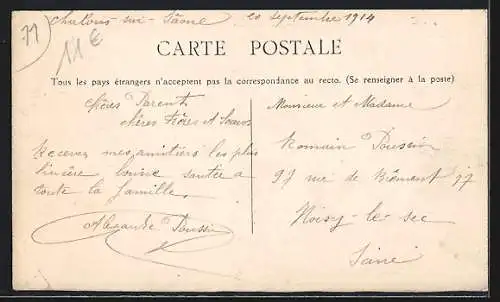 71
11€
Chalons sur Saone 20 septembre 1914
CARTE POSTALE
Tous les pays étrangers n'acceptent pas la correspondance au recto. (Se renseigner à la poste)
chères Parents
chères Frères et Soeurs
Recevez mes amitiers les plus
sincère bonne santée a
toute la famille.
Alexandre Poussin
Monsieur et Madame
Romain Poussin
97 rue de 97
Noisy-le-sec
Seine